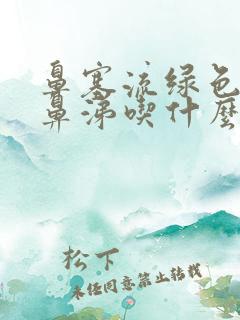 鼻塞流绿色
鼻涕喫什麼
松下
未经同意禁止转载